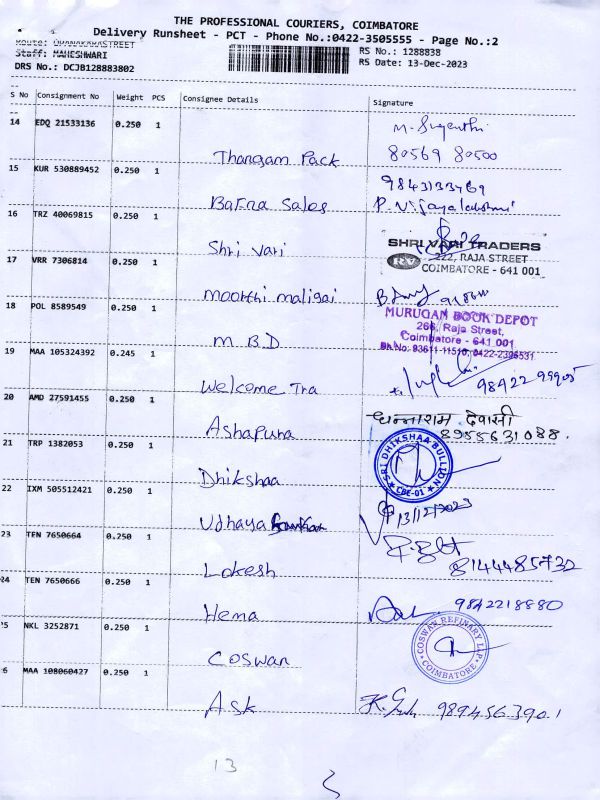 THE PROFESSIONAL COURIERS, COIMBATORE
Delivery Runsheet - PCT - Phone No.:0422-3505555 - Page No.:2
Staff: MAHESHWARI
RS No.: 1288838
DRS No.: DCJB128883802
RS Date: 13-Dec-2023
S No Consignment No Weight PCS Consignee Details Signature
14 EDQ 21533136 0.250 1
M. Suganthi
Thangam Pack 80569 80500
15 KUR 530889452 0.250 1
9843133769
Bafna Sales P. Vijayalakshmi
16 TRZ 40069815 0.250 1
Shri Vari SHRI VARI TRADERS
222, RAJA STREET
17 VRR 7306814 0.250 1
COIMBATORE - 641 001
Moorthi maligai
18 POL 8589549 0.250 1
MURUGAN BOOK DEPOT
266, Raja Street,
M.B.D Coimbatore - 641 001
Ph.No: 93611-11510, 0422-2396531
19 MAA 105324392 0.245 1
Welcome Tra 98422
20 AMD 27591455 0.250 1
धन्नाराम देवासी
Ashapura 8955631088.
21 TRP 1382053 0.250 1
Dhikshaa SRI DHIKSHAA BULLION
CBE-01
22 IXM 505512421 0.250 1
Udhaya 13/12/2023
23 TEN 7650664 0.250 1
Lokesh 8144485732
24 TEN 7650666 0.250 1
Hema 9842218880
5 NKL 3252871 0.250 1
Coswan COSWAN REFINARY LLP
COIMBATORE
6 MAA 108060427 0.250 1
Ask 9894563901
13